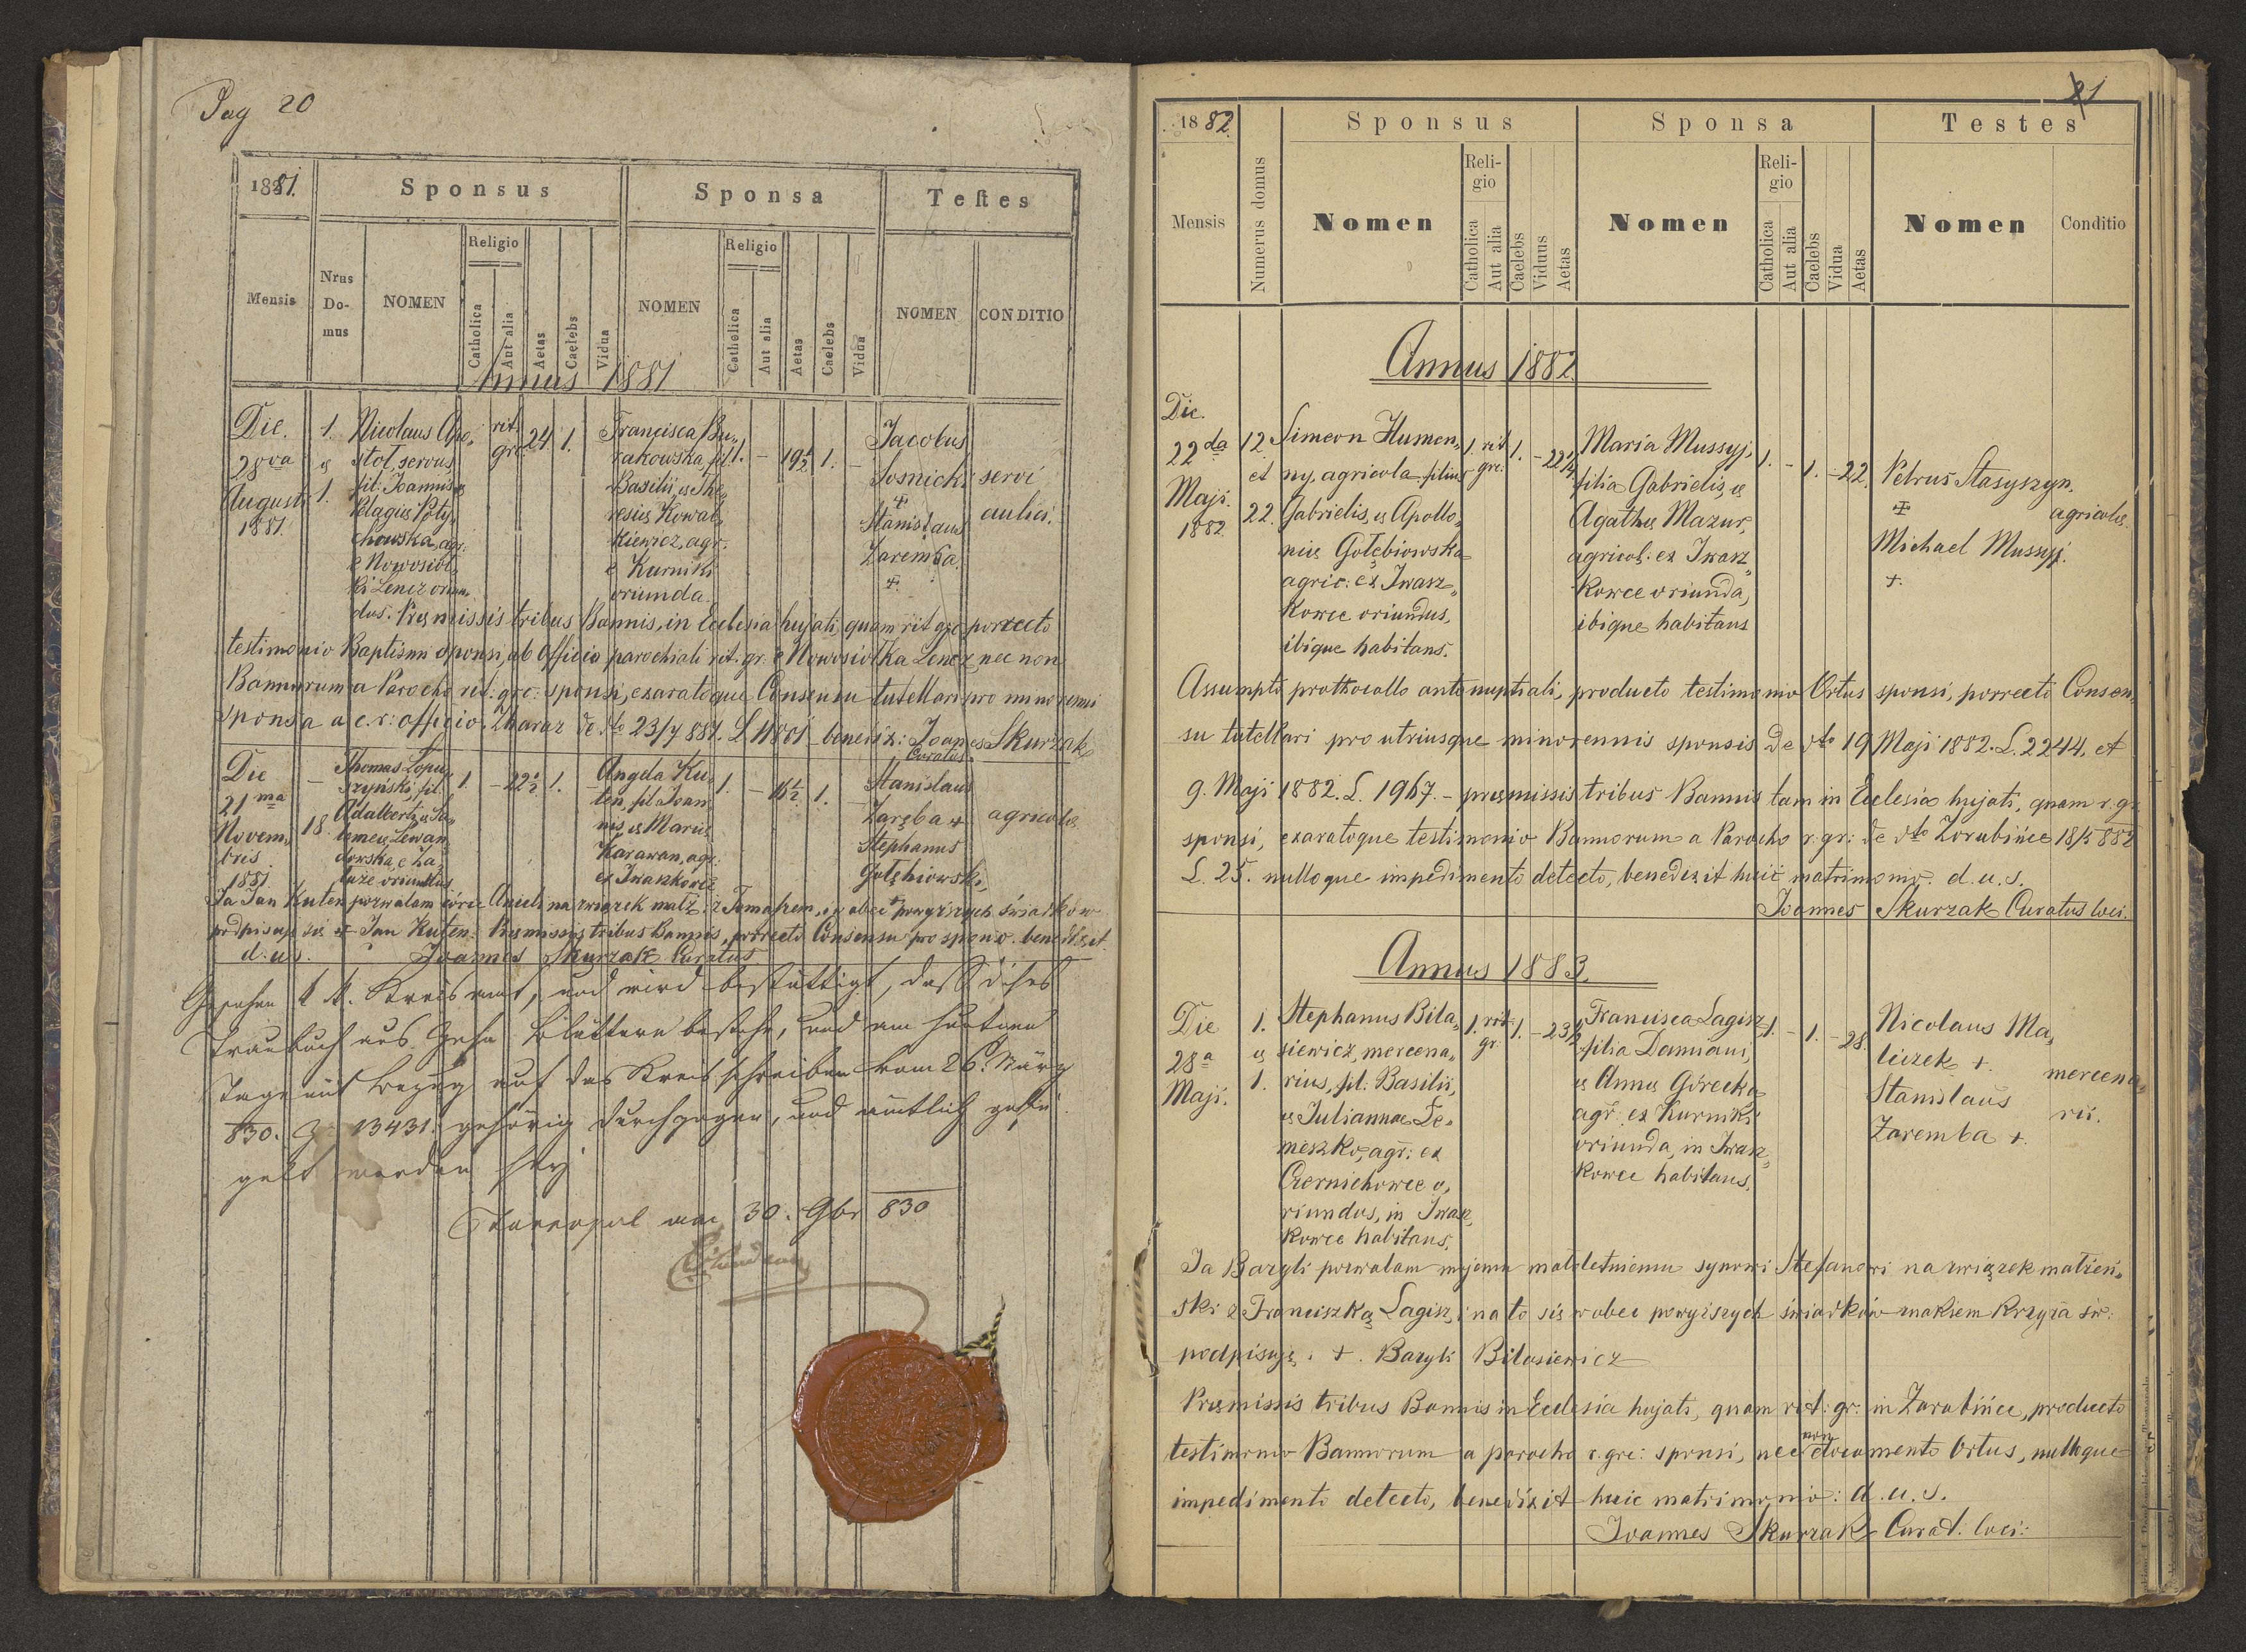 Pag 20
1881.
Sponsus
Sponsa
Testes
Mensis
Nrus Do-mus
NOMEN
Religio
Catholica
Aut alia
Aetas
Caelebs
Vidua
NOMEN
Religio
Catholica
Aut alia
Aetas
Caelebs
Vidua
NOMEN
CONDITIO
Annus 1881
Die.
28va
Augusti
1881.
1.
&
1.
Nicolaus Apo„
stoł, servus,
fil: Joannis &
Pelagiæ Poty„
chowska, agr:
e Nowosioł„
ki Lencz oriun„
dus.
rit.
grc.
24
1.
Francisca Bu„
rakowska, fil:
Basilii, & The„
resiæ Kowal„
kiewicz, agr.
e Kurniki
oriunda.
1.
–
19½
1.
–
Jacobus
Sosnicki
+
Stanislaus
Zaremba.
+.
servi
aulici.
Præmissis tribus Bannis, in Ecclesia hujati, quam rit: grc: porrecto
testimonio Baptismi sponsi, ab Officio parochiali rit: gr: e Nowosiołka Lencz nec non
Bannorum a Parocho rit: grc: sponsi, exaratoque Consensu tutellari pro minorenni
sponsa a c. r: officio. Zbaraz de dto 23/7 881. L 11801 benedix: Joannes Skurzak
Curatus.
Die
21ma
Novem„
bris
1881
–
18.
Thomas Łopu„
szyński, fil.
Adalberti & Sa„
lomeæ Lewan„
dowska, e Za„
łuże oriundus
1.
– 22½
1.
Angela Ku„
ten, fil: Joan„
nis, & Mariæ
Karawan, agr:
ex Iwaszkowce
1.
–
16½
1.
Stanislaus
Zaręba +
Stephanus
Gołębiowski,
+
agricolæ
Ja Jan Kuten pozwalam córce Anieli na związek małż: z Tomaszem, i w obec powyższych świadków
podpisuję się + Jan Kuten. Præmissis tribus Bannis, porrecto Consensu pro sponso. benedixit
d. u. s. Joannes Skurzak Curatus
Gesehen k. k. Kreisamt, und wird bestättigt, daß dises
Traubuch aus Zehn Blättern bestehe, und am heutigen
Tage mit Bezug auf das Kreisschreiben vom 26. März
830. Z 13431. gehörig durchgezogen, und amtlich gesie„
gelt worden sey
Tarnopol am 30. 9br 830
21
1882.
Sponsus
Sponsa
Testes
Mensis
Numerus domus
Nomen
Reli-gio
Catholica
Aut alia
Caelebs
Viduus
Aetas
Nomen
Reli-gio
Catholica
Aut alia
Caelebs
Vidua
Aetas
Nomen
Conditio
Annus 1882.
Die.
22da
Maji.
1882
12.
et
22.
Simeon Humen„
ny, agricola filius
Gabrielis, & Apollo„
niæ Gołębiowska
agric: ex Iwasz„
kowce oriundus,
ibique habitans.
1. rit
grc:
1.
– 22½
Maria Mussyj,
filia Gabrielis, &
Agathæ Mazur,
agricol: ex Iwasz„
kowce oriunda,
ibique habitans
1.
–
1.
– 22.
Petrus Stasyszyn.
+
Michael Mussyj.
+.
agricolæ.
Assumpto prothocollo antenuptiali, producto testimonio Ortus sponsi, porrecto Consen„
su tutellari pro utriusque minorennis sponsis de dto 19 Maji 1882. L. 2244, et
9. Maji 1882. L. 1967. – præmissis tribus Bannis tam in Ecclesia hujati, quam r. gr
sponsi, exaratoque testimonio Bannorum a Parocho r. gr: de dto Zarubińce 18/5 882
L. 25. nulloque impedimento detecto, benedixit huic matrimonio. d. u. s.
Joannes Skurzak Curatus loci.
Annus 1883.
Die
28a
Maji.
1.
&
1.
Stephanus Bila„
siewicz, mercena„
rius, fil: Basilii,
& Juliannæ De„
meszko, agr: ex
Czernichowce o„
riundus, in Iwasz„
kowce habitans.
1. rit
gr.
1.
– 23½
Francisca Lagisz
filia Damiani,
& Annæ Górecka
agr: ex Kurniki
oriunda, in Iwasz„
kowce habitans.
1.
–
1.
– 28.
Nicolaus Ma„
liczek +.
Stanislaus
Zaremba +.
mercena„
rii.
Ja Bazyli pozwalam mojemu małoletniemu synowi Stefanowi na związek małżeń„
ski z Franciszką Lagisz, i na to się wobec powyższych świadków znakiem Krzyża św:
podpisuję. +. Bazyli Bilasiewicz
Præmissis tribus Bannis in Ecclesia hujati, quam rit: gr: in Zarubińce, producto
testimonio Bannorum a parocho r. grc: sponsi, nec non documento Ortus, nulloque
impedimento detecto, benedixit huic matrimonio: d. u. s.
Joannes Skurzak Curat. loci: